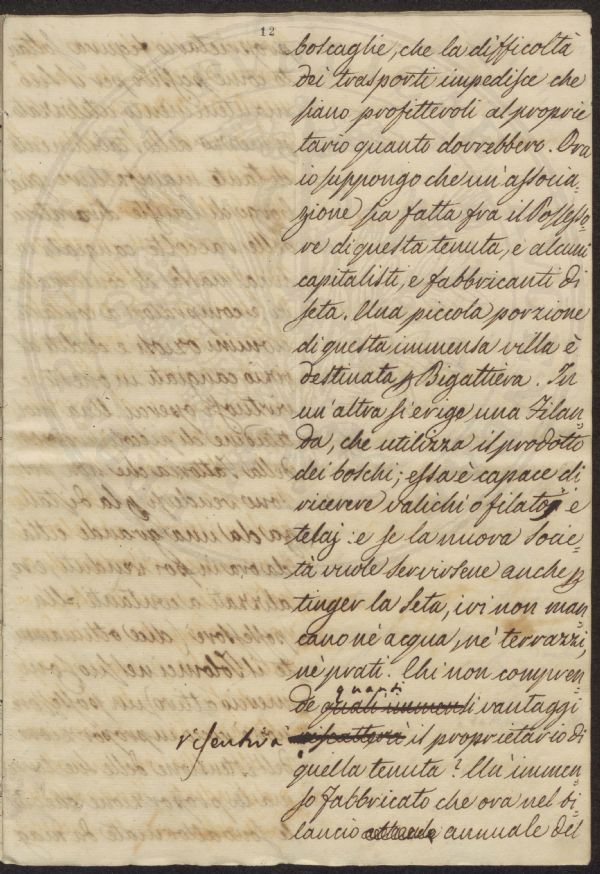 12
boscaglie, che la difficoltà
dei trasporti impedisce che
siano profittevoli al proprie
tario quanto dovrebbero. Ora
io suppongo che un'associa=
zione sia fatta fra il Possesso=
re di questa tenuta, e alcuni
capitalisti, e fabbricanti di
seta. Una piccola porzione
di questa immensa villa è
destinata p Bigattiera. In
un'altra si erige una Filan=
da, che utilizza il prodotto
dei boschi; essa è capace di
ricevere valichi o filatoj e
telaj: e se la nuova Socie=
tà vuole servirsene anche p
tinger la seta, ivi non man=
cano nè acqua, nè terrazzi,
nè prati. Chi non compren=
quanti
de quali immensi vantaggi
risentirà il proprietario di
quella tenuta? Un'immen=
so Fabbricato che ora nel bi=
lancio annuale del